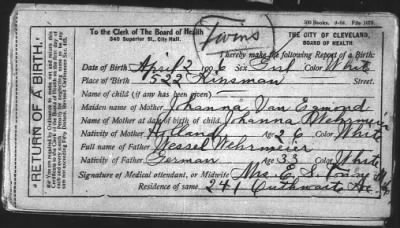 500 Books.
To the Clerk of The Board of Health
340 Superior St., City Hall.
Twins
THE CITY OF CLEVELAND,
BOARD OF HEALTH.
I hereby make the following Report of a Birth:
Date of Birth April 2 1906 Sex Girl Color White
Place of Birth 522 Kinsman Street.
Name of child (if any has been given)
Maiden name of Mother Johanna Van Egmond
Name of Mother at date of birth of child Johanna Wehrmeier
Nativity of Mother Holland Age 26 Color White
Full name of Father Wessel Wehrmeier
Nativity of Father German Age 33 Color White
Signature of Medical attendant, or Midwife Mrs. E. S.
Residence of same 241 Outhwaite Av.
RETURN OF A BIRTH.